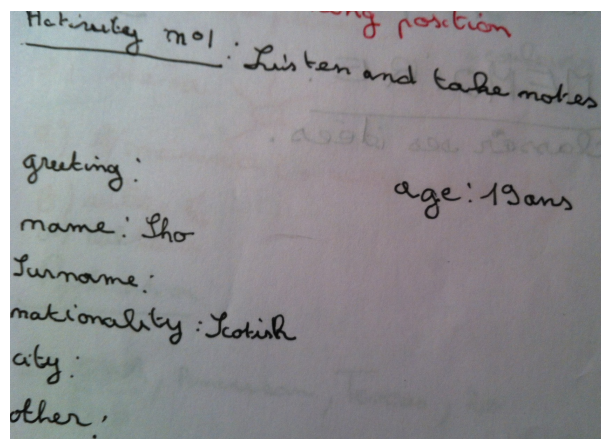 ng position
Activity no1 : Listen and take notes
greeting :
age : 19 ans
name : Sho
Surname :
nationality : Scotish
city :
other :